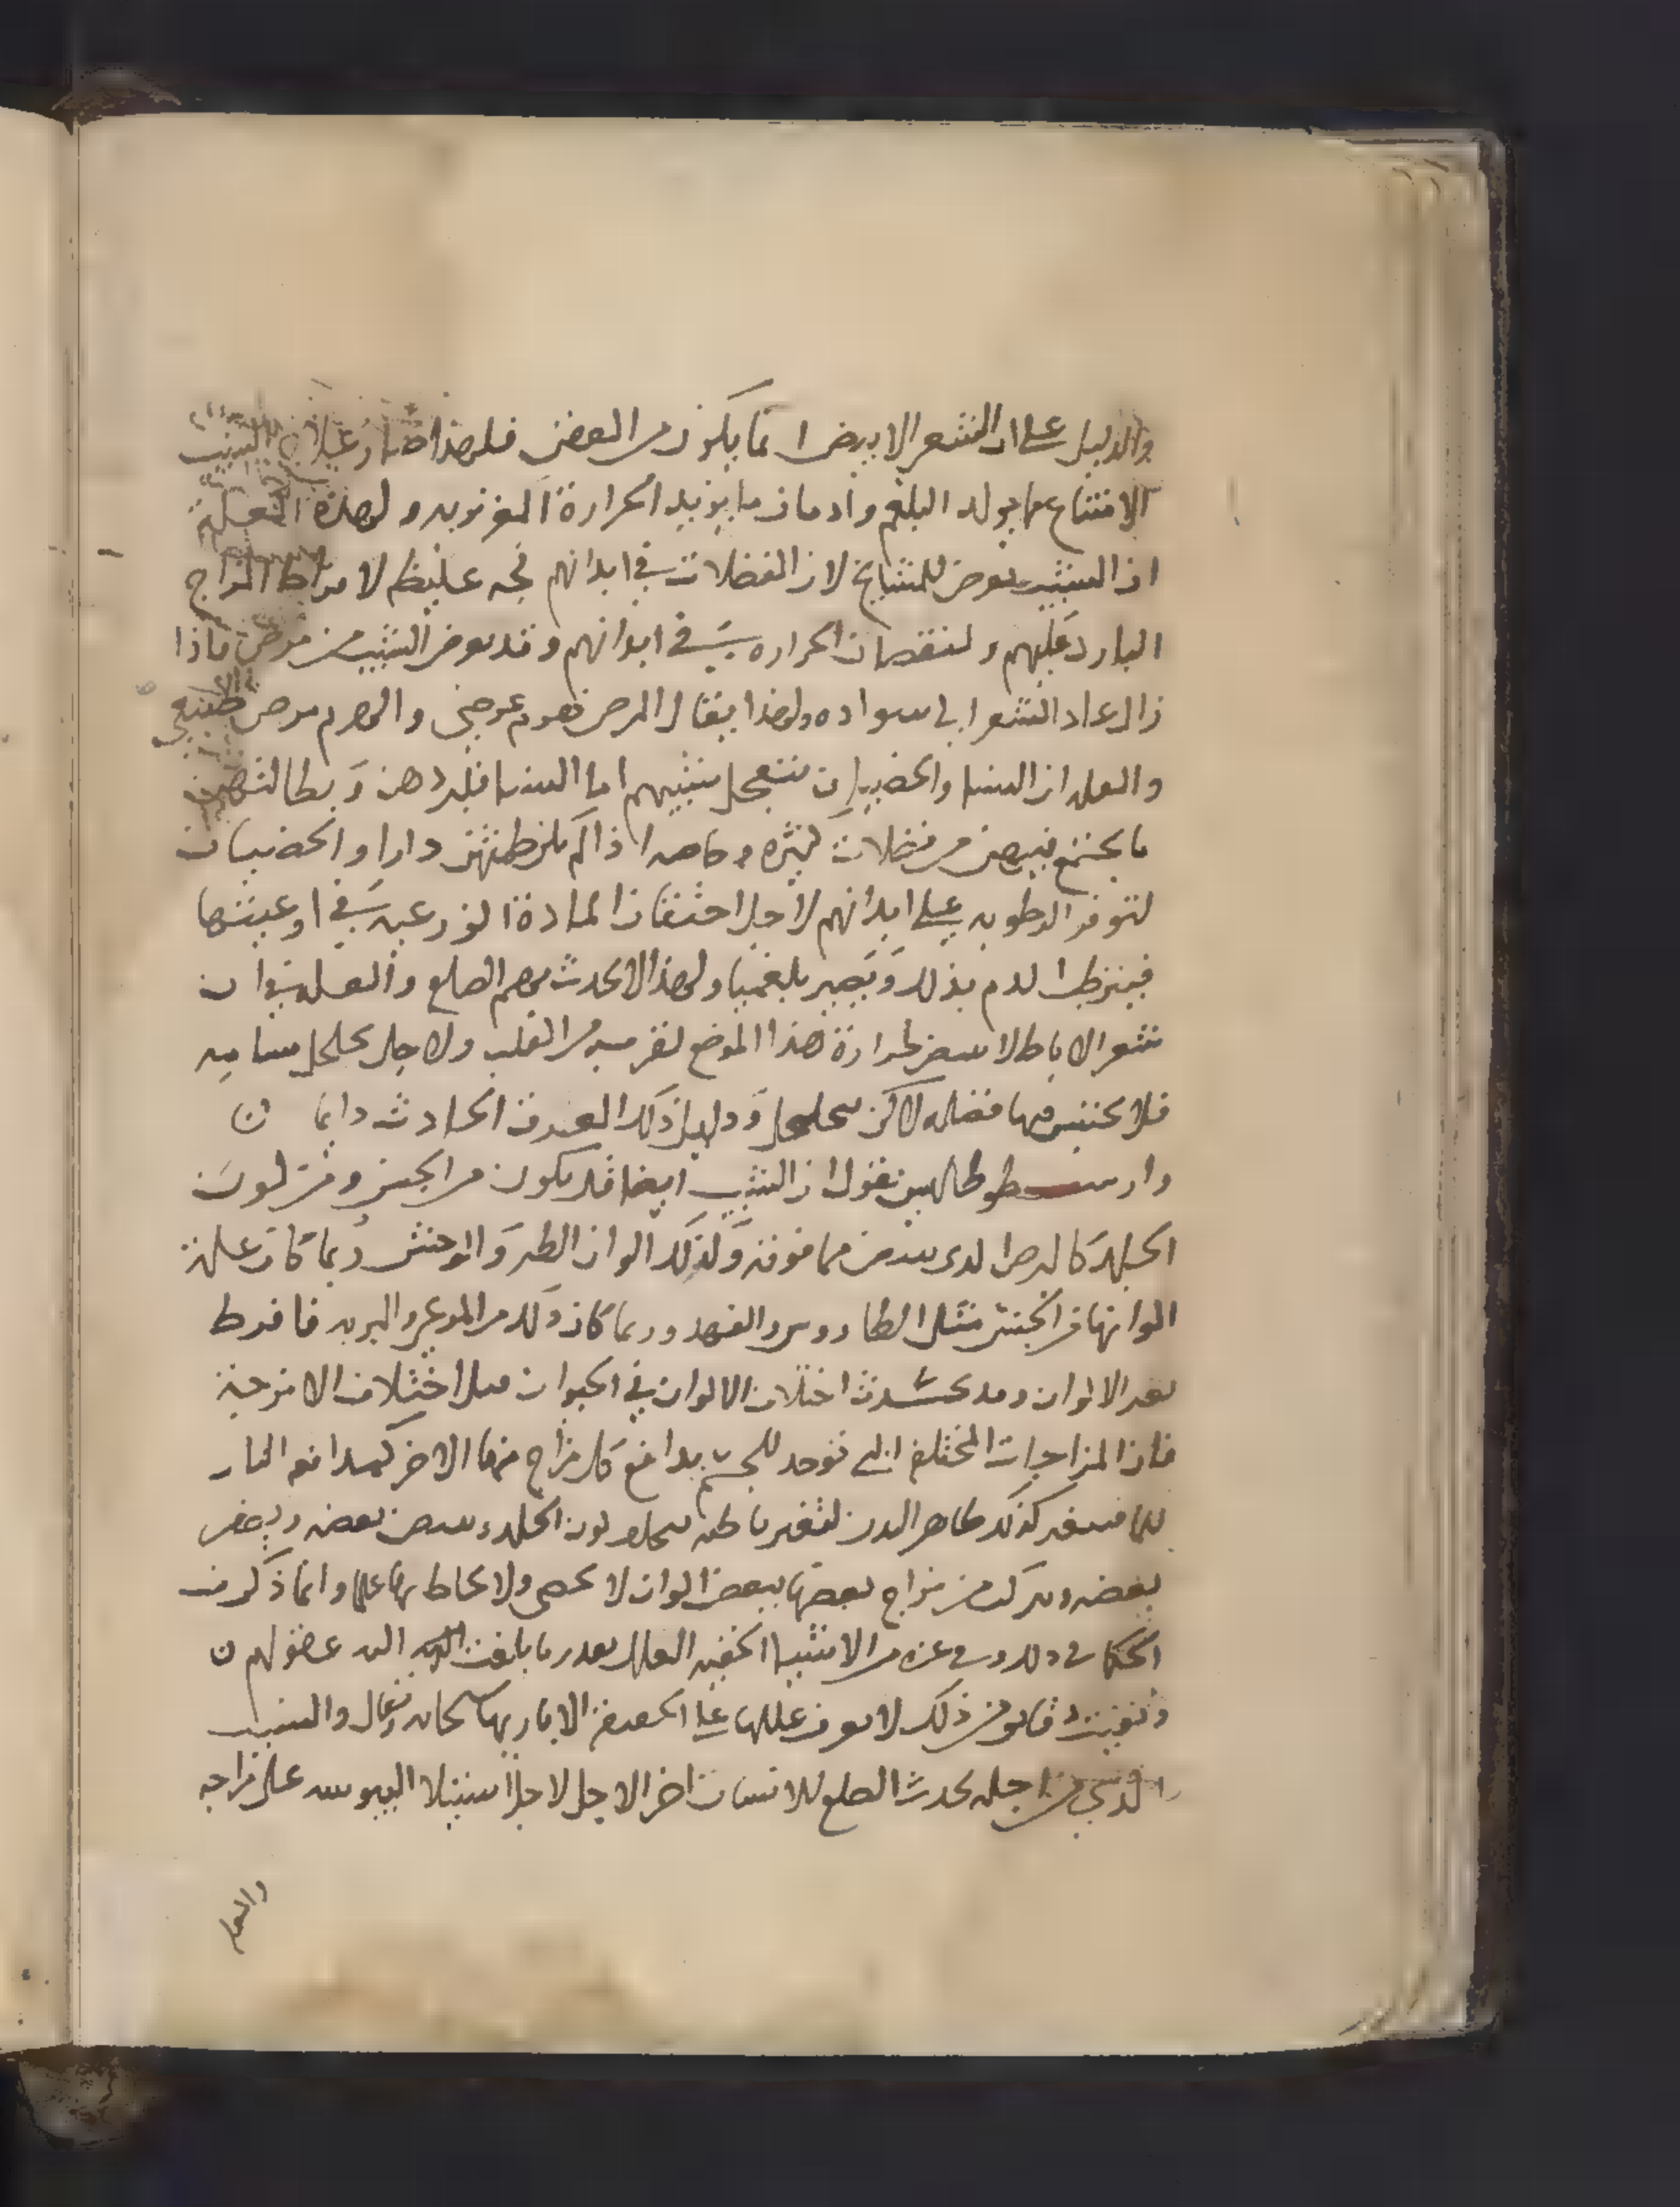 والدليل على ان الشعر الابيض انما يكون من العفن فلهذا صار علاج الشيب
الامتناع مما يولد البلغم وادمان ما يزيد الحرارة الغريزيه ولهذه العلة
ان الشيب يعرض للمشايخ لان الفضلات في ابدانهم فجه غليظه لافراط المزاج
البارد عليهم ولنقصان الحراره في ابدانهم وقد يعرض الشيب من مرض فاذا
زال عاد الشعر الى سواده ولهذا يقال المرض هرم عرضي والهرم مرض طبيعي
والعله ان النسا والخصيان يتعجل شيبهم اما النسا فلبردهن وبطالتهن
ما يجتمع فيهن من فضلات كثيره وخاصه اذا لم يكن طمثهن دارا والخصيان
لتوفر الرطوبه على ابدانهم لاجل احتقان المادة الزرعيه في اوعيتها
فيترطب الدم بذلك ويصير بلغميا ولهذا لا يحدث بهم الصلع والعله في ان
شعر الاباط لا يبيض لحرارة هذا الموضع لقربه من القلب ولاجل تخلخل مسامه
فلا يحتبس فيها فضله لاكن يتحلحل ودليل ذلك العرق الحادث دايما ن
وارسطوطاليس يقول ان الشيب ايضا قد يكون من الجنس ومن لون
الجلد كالبرص الذي يبيض مما فوقه ولذلك الوان الطير والوحش ربما كان علة
الوانها من الجنس مثل الطاووس والفهد وربما كان ذلك من المرعى والبريه فافرط
بعد الالوان وقد يحدث اختلاف الالوان في الحيوان من اختلاف الامزجة
فان المزاجات المختلفه التي توجد للجسم يدافع كل مزاج منها الاخر كمدافعه النار
للما فيتغير كذلك ظاهر البدن لتغير باطنه لون الجلد ويبيض بعضه ويصفر
بعضه ويتركب من مزاج بعضها ببعض الوان لا تحصى ولا يحاط بها علما وانما ذكرت
الحكما في ذلك وفي غيره من الاشيا الخفيه العلل بقدر ما بلغت اليه عقولهم ن
وما فوق ذلك لا يعرف عللها على الحقيقه الا باريها سبحانه وتعالى والسبب
الذي من اجله يحدث الصلع للانسان اخر الاجل لاجل استيلا اليبوسه على مزاجه
والعله